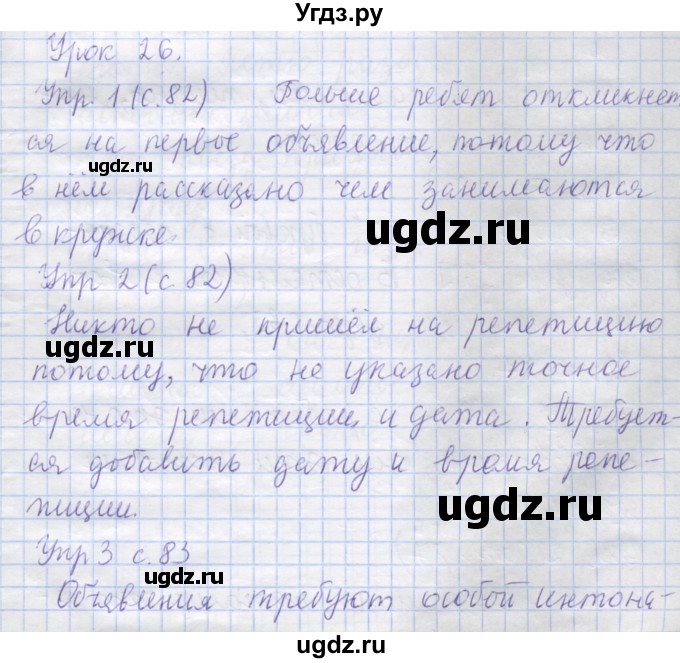 Угдз.ру
Урок 26.
Упр. 1 (с.82) Больше ребят откликнет
ся на первое объявление, потому что
ugdz.ru
в нём рассказано чем занимаются
ugdz.ru
ugdz.ru
в кружке.
Упр 2 (с 82)
Никто не пришёл на репетицию
ugdz.ru
потому, что не указано точное
время репетиции и дата. Требует-
ся добавить дату и время репе-
ugdz.ru
тиции.
Упр 3 с.83
ugdz.ru
Объявления требуют особой интона-
ugdz.ru